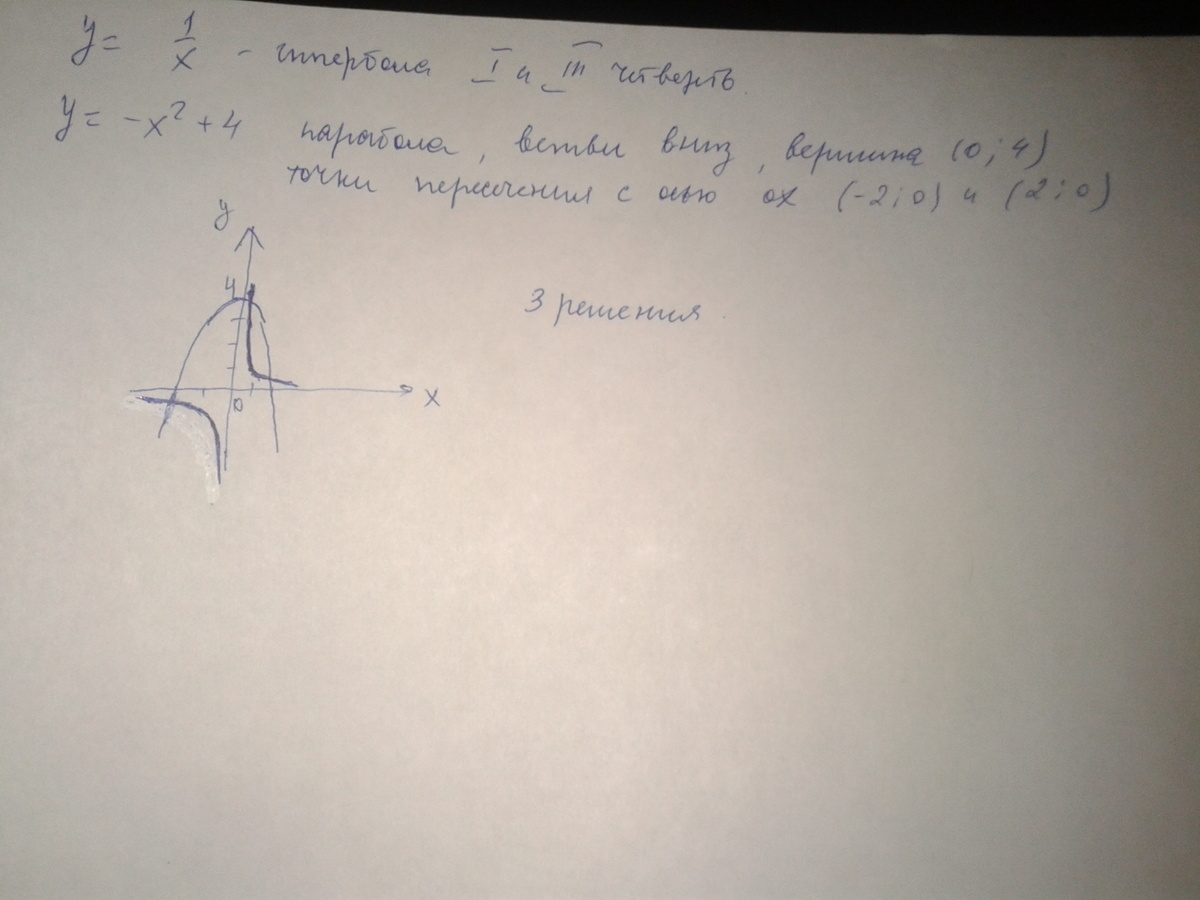 y = 1/x - гипербола I и III четверть.
y = -x² + 4 парабола, ветви вниз, вершина (0; 4)
точки пересечения с осью ox (-2; 0) и (2; 0)
y
4
3 решения.
0
x